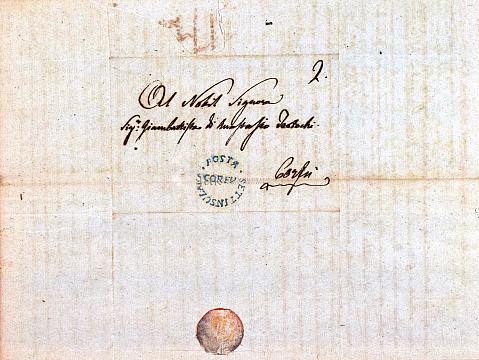 2.
Al Nobil Signore
Sigr: Giambattista di
Corfù
POSTA SETT INSULARE
CORFU